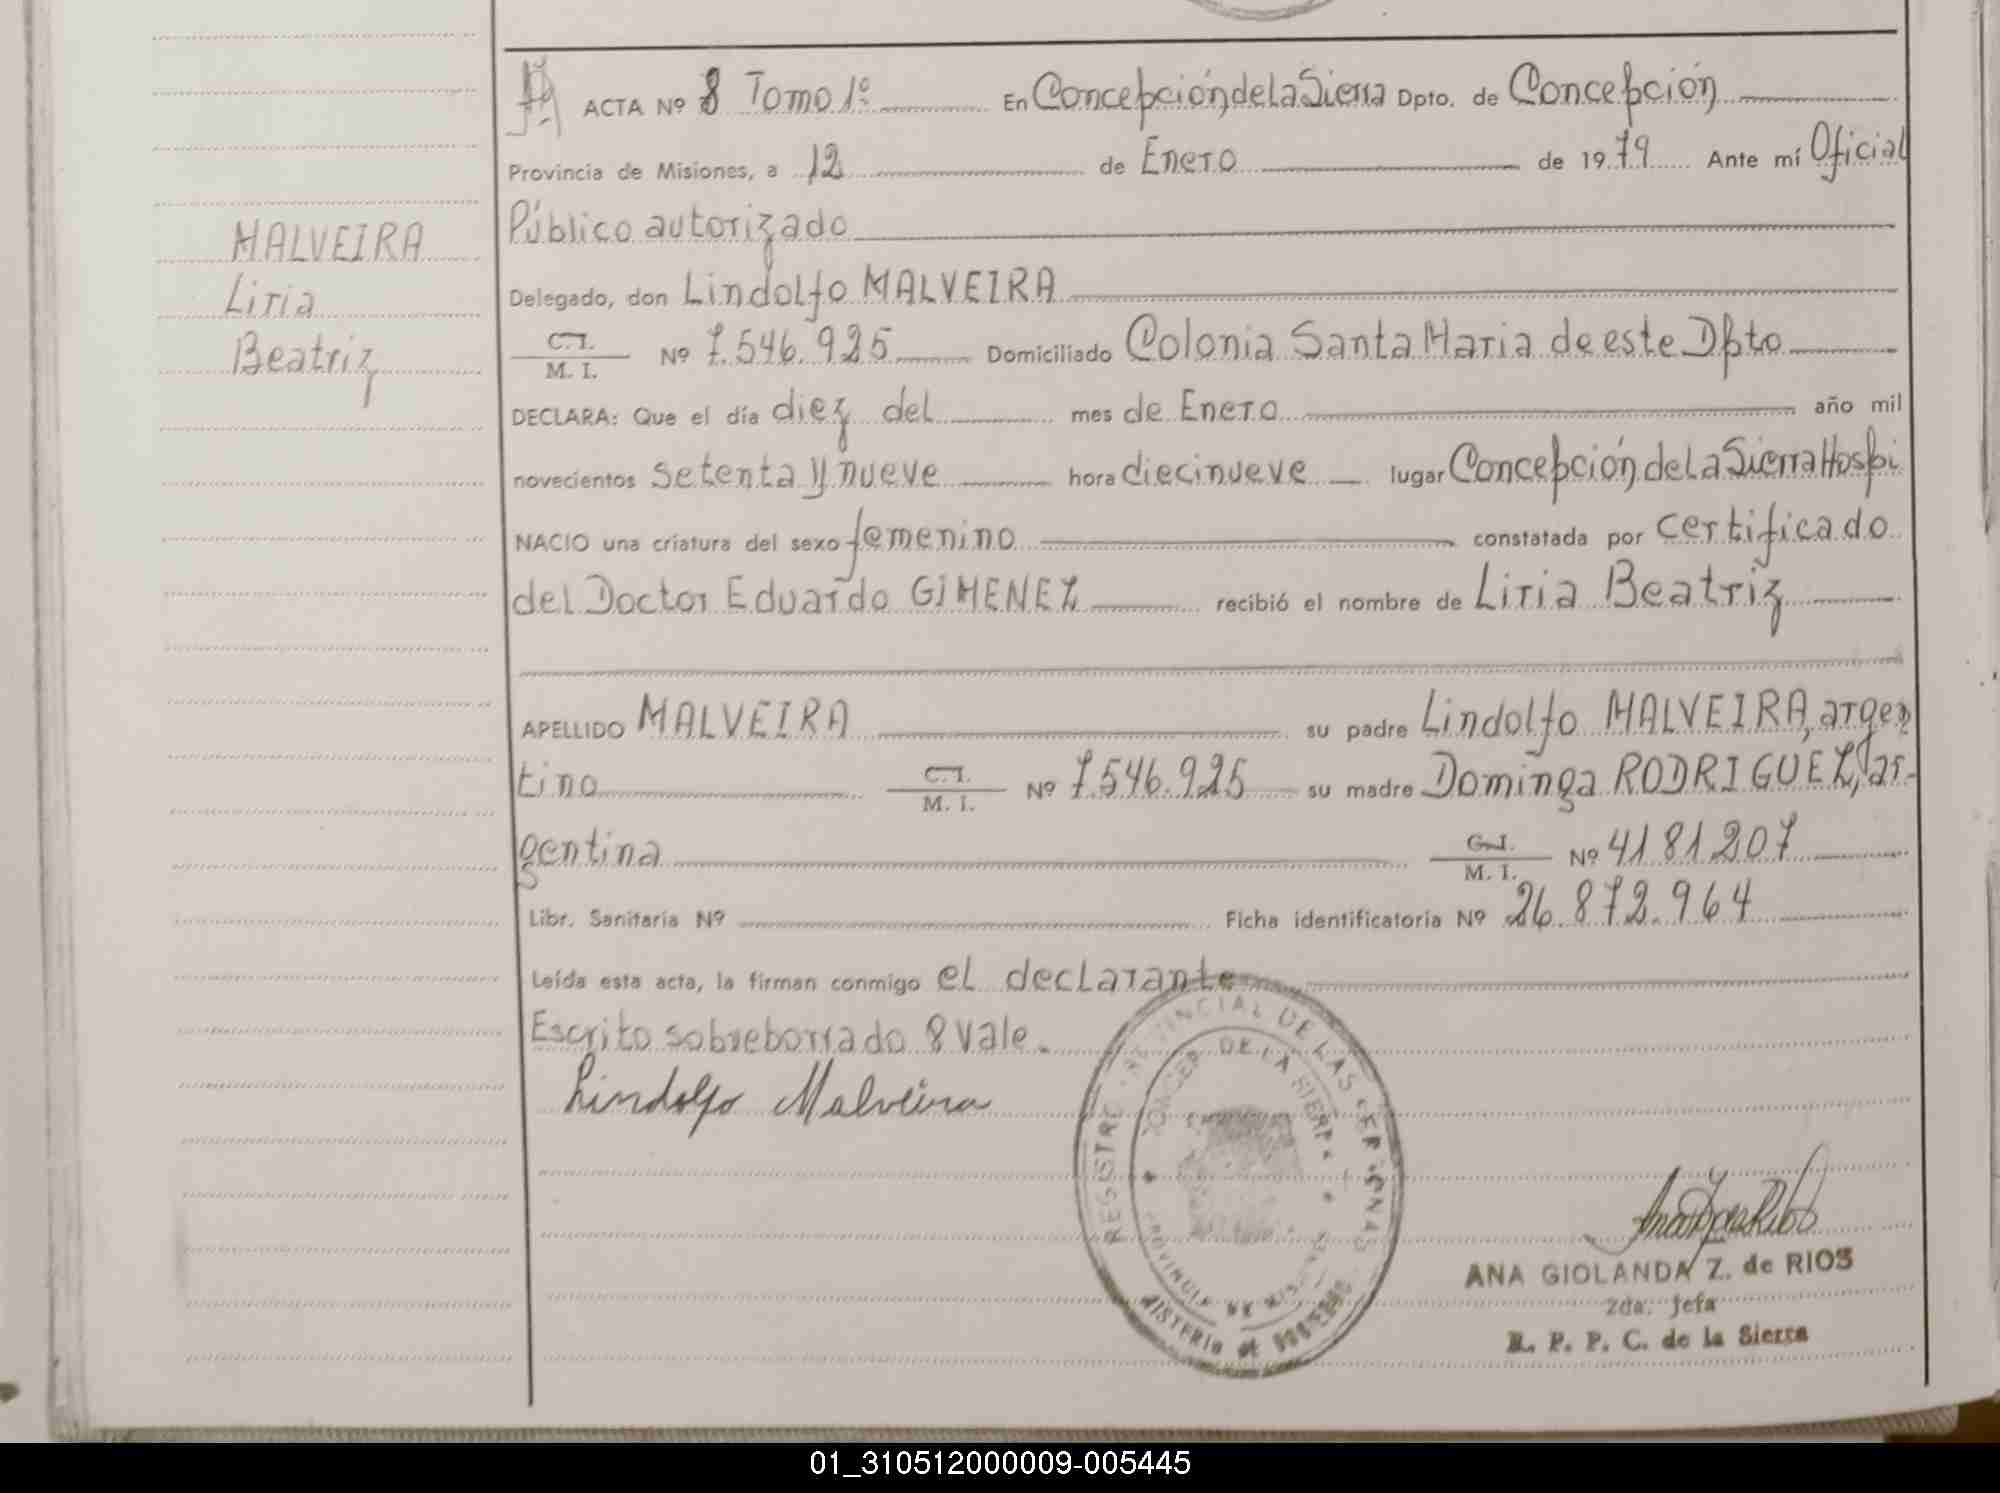 ACTA Nº 8 Tomo 1º En Concepción de La Sierra Dpto. de Concepción
Provincia de Misiones, a 12 de Enero de 1979 Ante mí Oficial
Público autorizado
MALVEIRA
Liria
Beatriz
Delegado, don Lindolfo MALVEIRA
C.I. M. I. Nº 7.546.925 Domiciliado Colonia Santa Maria de este Dpto
DECLARA: Que el día diez del mes de Enero año mil
novecientos setenta y nueve hora diecinueve lugar Concepción de La Sierra Hospi
NACIO una criatura del sexo femenino constatada por certificado
del Doctor Eduardo GIMENEZ recibió el nombre de Liria Beatriz
APELLIDO MALVEIRA su padre Lindolfo MALVEIRA, argen
tino C.I. M. I. Nº 7.546.925 su madre Dominga RODRIGUEZ, ar-
gentina C.I. M. I. Nº 4181207
Libr. Sanitaria Nº Ficha identificatoria Nº 26.872.964
Leída esta acta, la firman conmigo el declarante
Escrito sobreborrado 8 Vale.
Lindolfo Malveira
REGISTRO PROVINCIAL DE LAS PERSONAS
CONCEP. DE LA SIERRA
PROVINCIA DE MISIONES
ANA GIOLANDA Z. de RIOS
2da. Jefa
R. P. P. C. de la Sierra
01_310512000009-005445